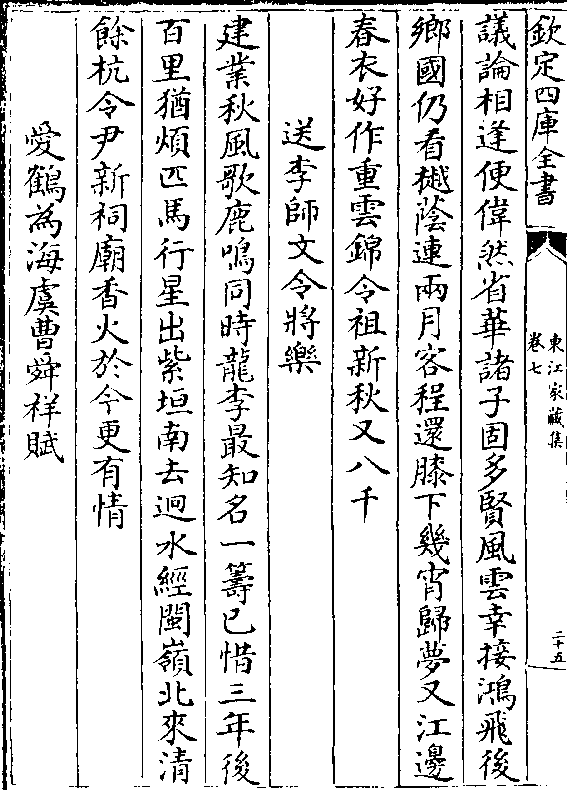 欽定四庫全書
東江家藏集
卷七
二十五
議論相逢便偉然省華諸子固多賢風雲幸接鴻飛後
鄉國仍看樾蔭連兩月客程還膝下幾宵歸夢又江邊
春衣好作重雲錦令祖新秋又八千
送李師文令將樂
建業秋風歌鹿鳴同時龍李最知名一籌已惜三年後
百里猶煩匹馬行星出紫垣南去迥水經閩嶺北來清
餘杭令尹新祠廟香火於今更有情
愛鶴為海虞曹舜祥賦